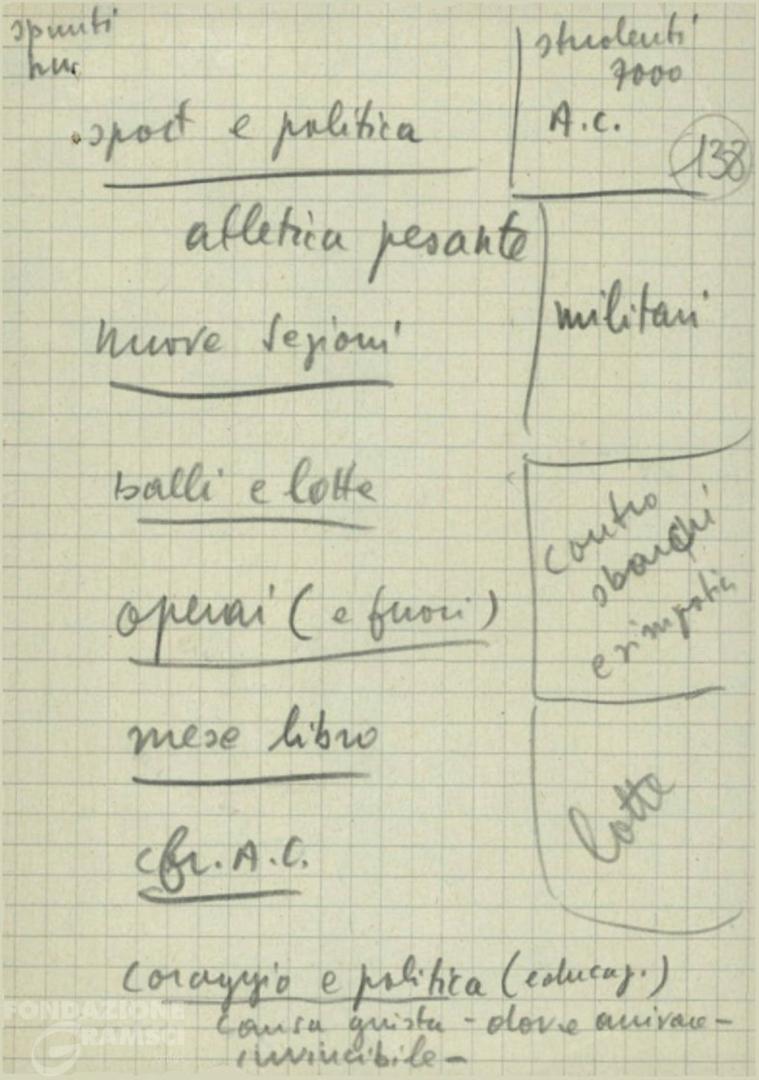 spunti
studenti
7000
sport e politica
A.C.
138
atletica pesante
militari
nuove sezioni
balli e lotte
contro
sbarchi
e
operai (e fuori)
mese libro
lotte
cfr. A.C.
Coraggio e politica (educaz.)
causa giusta - dove arrivare -
invincibile -
FONDAZIONE
GRAMSCI